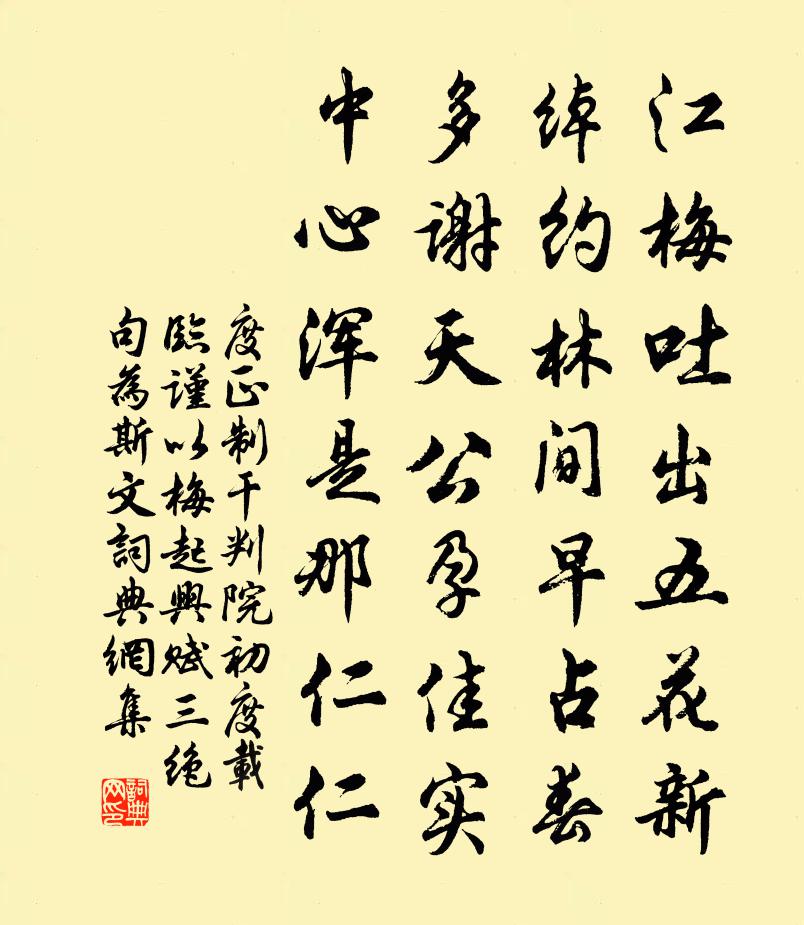 江梅吐出五花新
绰约林间早占春
多谢天公孕佳实
中心浑是那仁仁
度正制干判院初度载
临谨以梅起興赋三绝
句為斯文詞典網集
詞典网印